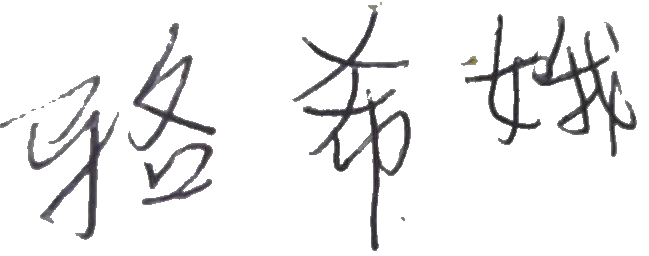 骆希娥